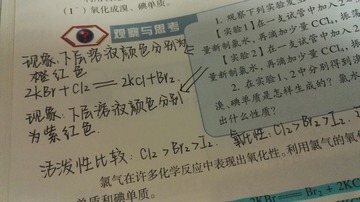 (1⁻) 氧化成溴、碘单质。
观察与思考
1. 观察下列实验发生
【实验1】在一支试管中加入2
量新制氯水，再滴加少量CCl₄，振
【实验2】在一支试管中加入
量新制氯水，再滴加少量CCl₄
2. 在实验1、2中分别得到溴
溴、碘单质是怎样生成的？氯水
出什么性质？
现象:下层溶液颜色分别为
橙红色
2KBr + Cl₂ = 2KCl + Br₂.
现象:下层溶液颜色分别
为紫红色.
活泼性比较: Cl₂ > Br₂ > I₂.
氧化性: Cl₂ > Br₂ > I₂.
氯气在许多化学反应中表现出氧化性。利用氯气的氧
单质和碘单质。
2KBr
Br₂ + 2KC